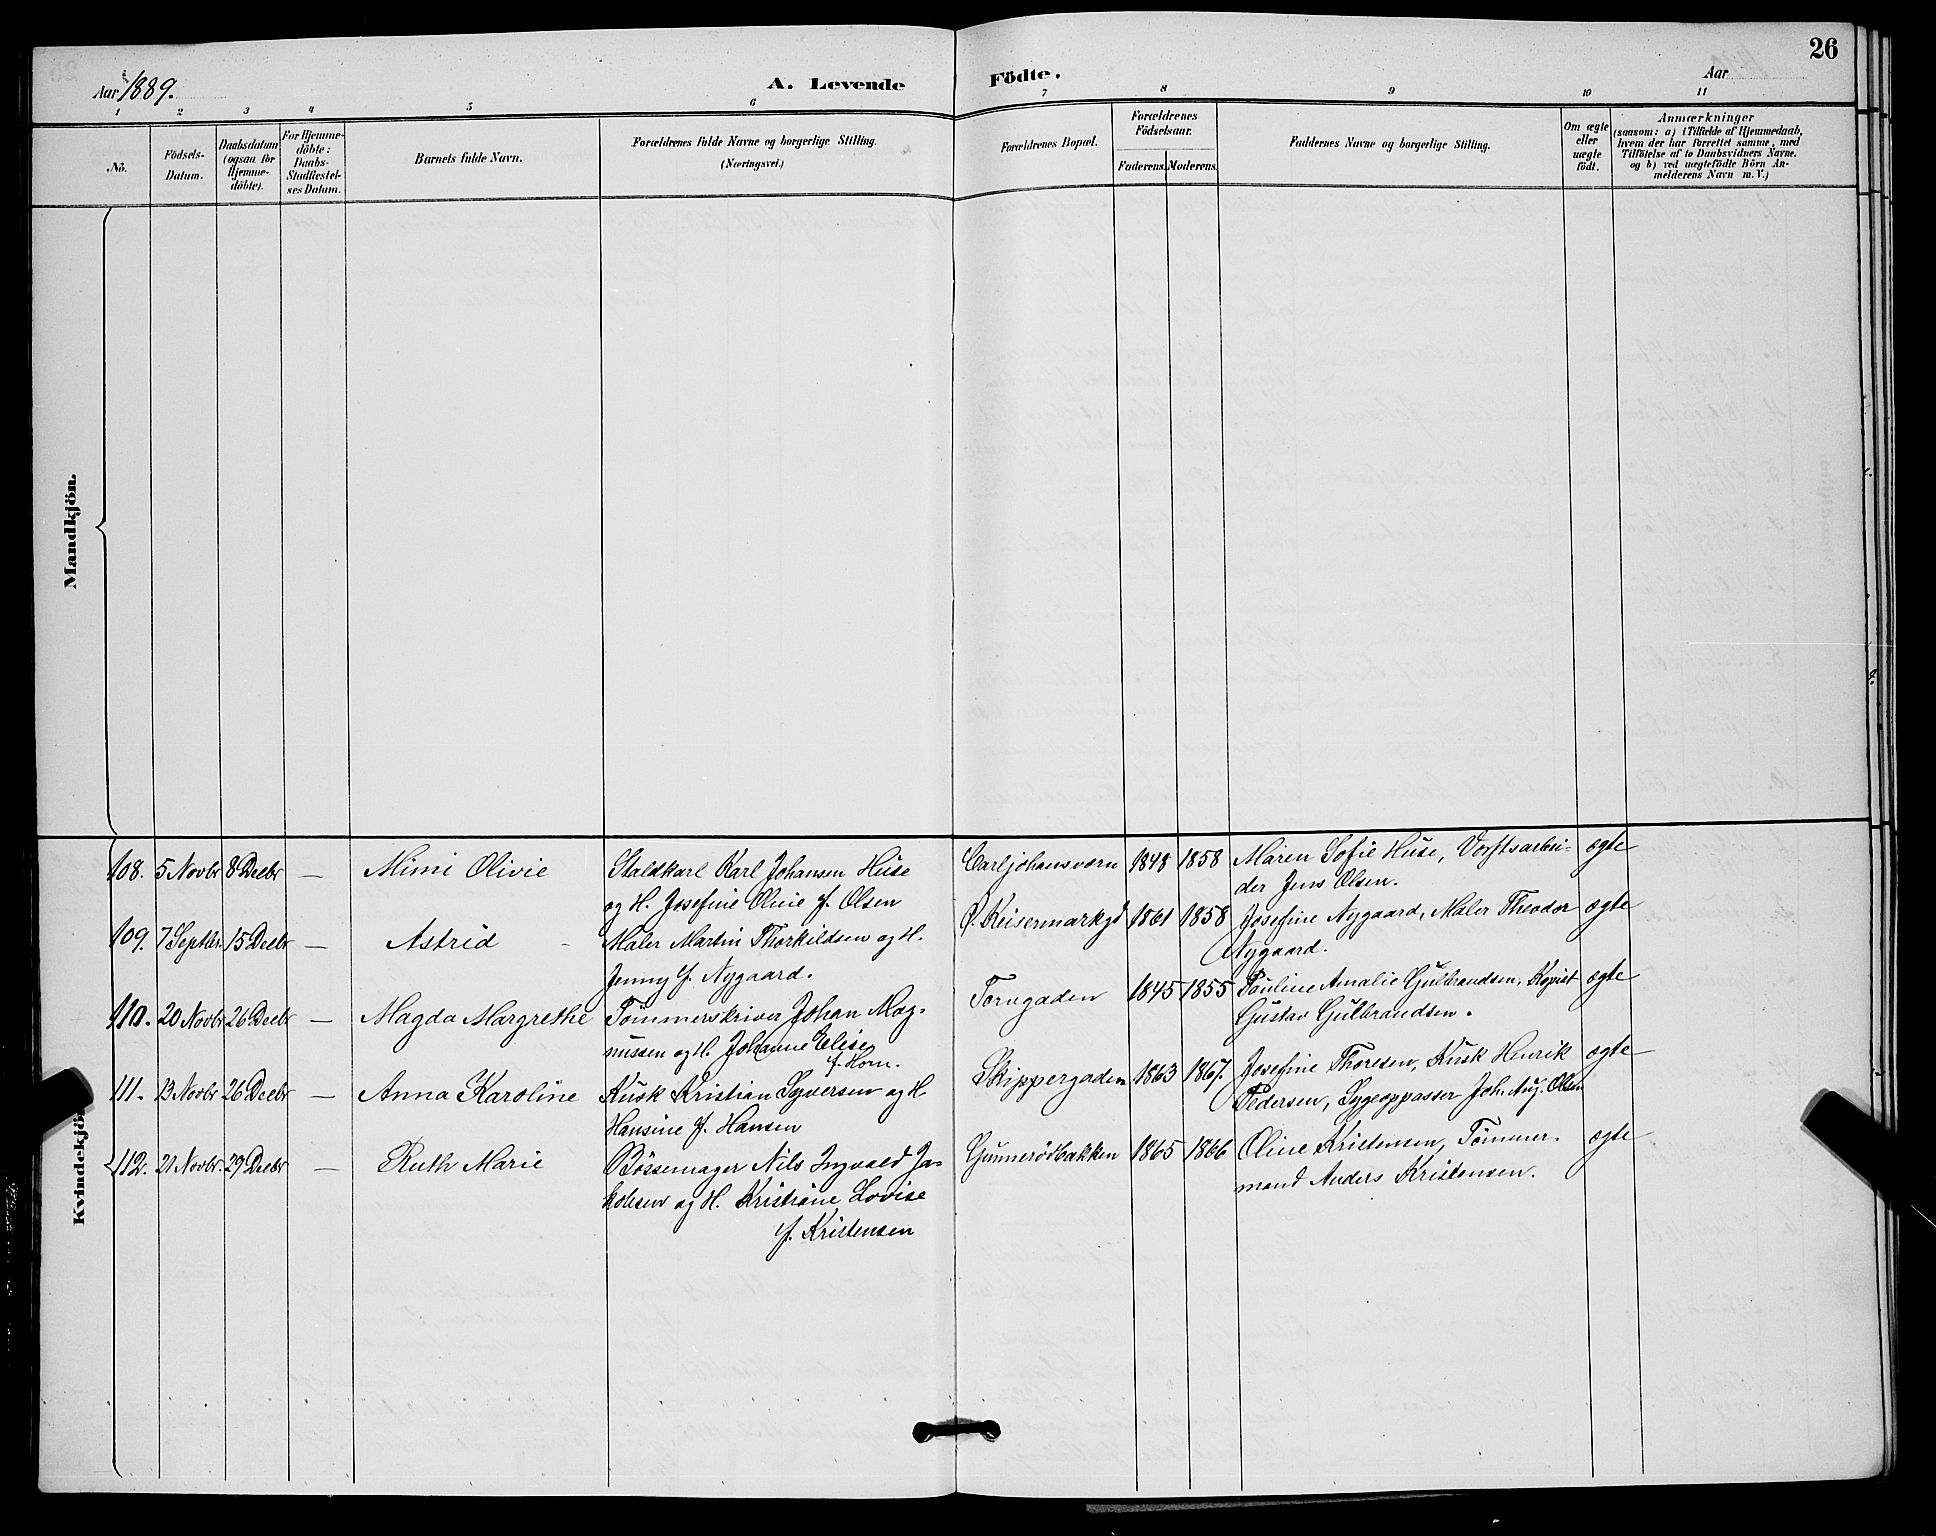 26
Aar 1889.
A. Levende
Födte.
Aar
1 2 3 4 5 6 7 8 9 10 11
No.
Födsels-
Datum.
Daabsdatum
(ogsaa for
Hjemme-
döbte).
For Hjemme-
döbte:
Daabs-
Stadfæstel-
ses Datum.
Barnets fulde Navn.
Forældrenes fulde Navne og borgerlige Stilling.
(Næringsvei.)
Forældrenes Bopæl.
Forældrenes
Födselsaar.
Faderens. Moderens.
Faddernes Navne og borgerlige Stilling.
Om ægte
eller
uægte
födt.
Anmærkninger
(saasom: a) i Tilfælde af Hjemmedaab,
hvem der har forrettet samme, med
Tilföielse af to Daabsvidners Navne.
og b) ved uægtefödte Börn An-
melderens Navn m. V.)
Mandkjön.
Kvindekjön.
108. 5 Novbr 8 Decbr — Mimi Olivie
Staldkarl Karl Johansen Huse
og H. Josefine Oline f. Olsen
Carljohansværn 1848 1858
Maren Sofie Huse, Værftsarbei-
der Jens Olsen.
ægte
109. 7 Septbr. 15 Decbr — Astrid
Maler Martin Thorkildsen og H.
Jenny f. Nygaard.
Ø. Keisermarkgd 1861 1858
Josefine Nygaard, Maler Theodor
Nygaard.
ægte
110. 20 Novbr 26 Decbr — Magda Margrethe
Tömmerskriver Johan Mag-
nussen og H. Johanne Elise
f. Horn.
Torvgaden 1845 1855
Pauline Amalie Gulbrandsen, Kopist
Gustav Gulbrandsen.
ægte
111. 13 Novbr 26 Decbr — Anna Karoline
Kusk Kristian Syversen og H
Hansine f. Hansen
Skippergaden 1863 1867.
Josefine Thoresen, Kusk Henrik
Pedersen, Sygeoppasser Joh. Aug. Olsen
ægte
112. 21 Novbr. 29 Decbr — Ruth Marie
Bössemager Nils Ingvald Ja-
kobsen og H. Kristiane Lovise
f. Kristensen
Gunnerödbakken 1865 1866
Oline Kristensen, Tömmer-
mand Anders Kristensen.
ægte